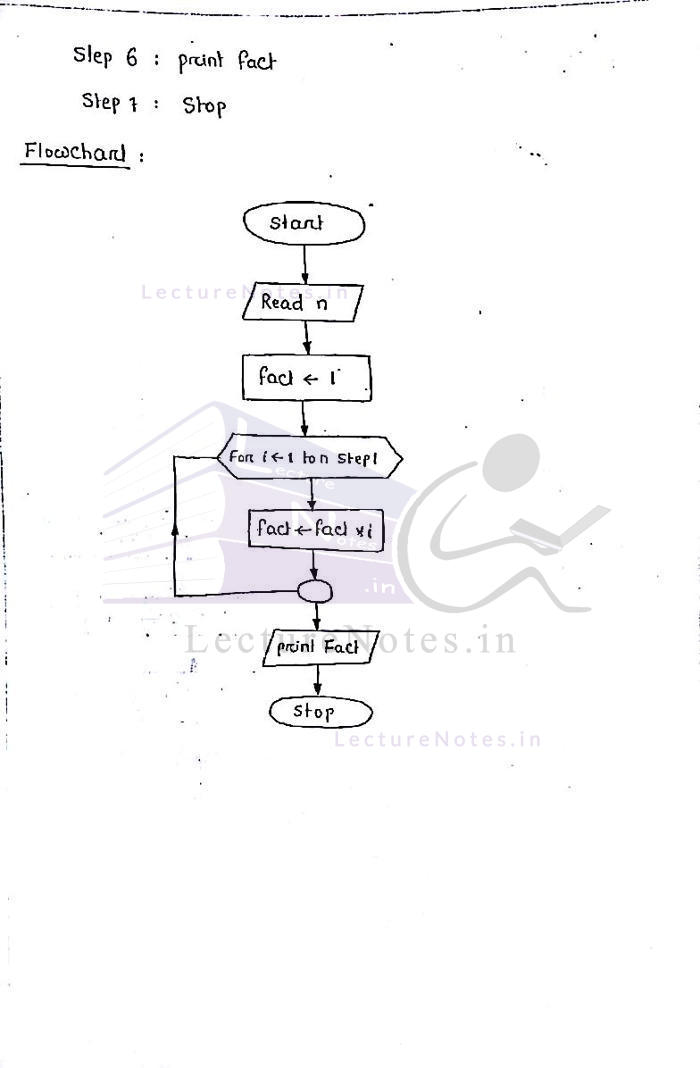 Step 6 : print fact
Step 7 : Stop
Flowchart :
Start
LectureNotes.in
Read n
fact ← 1
For i ← 1 to n Step 1
Lecture
fact ← fact * i
Notes
.in
LectureNotes.in
print Fact
Stop
LectureNotes.in